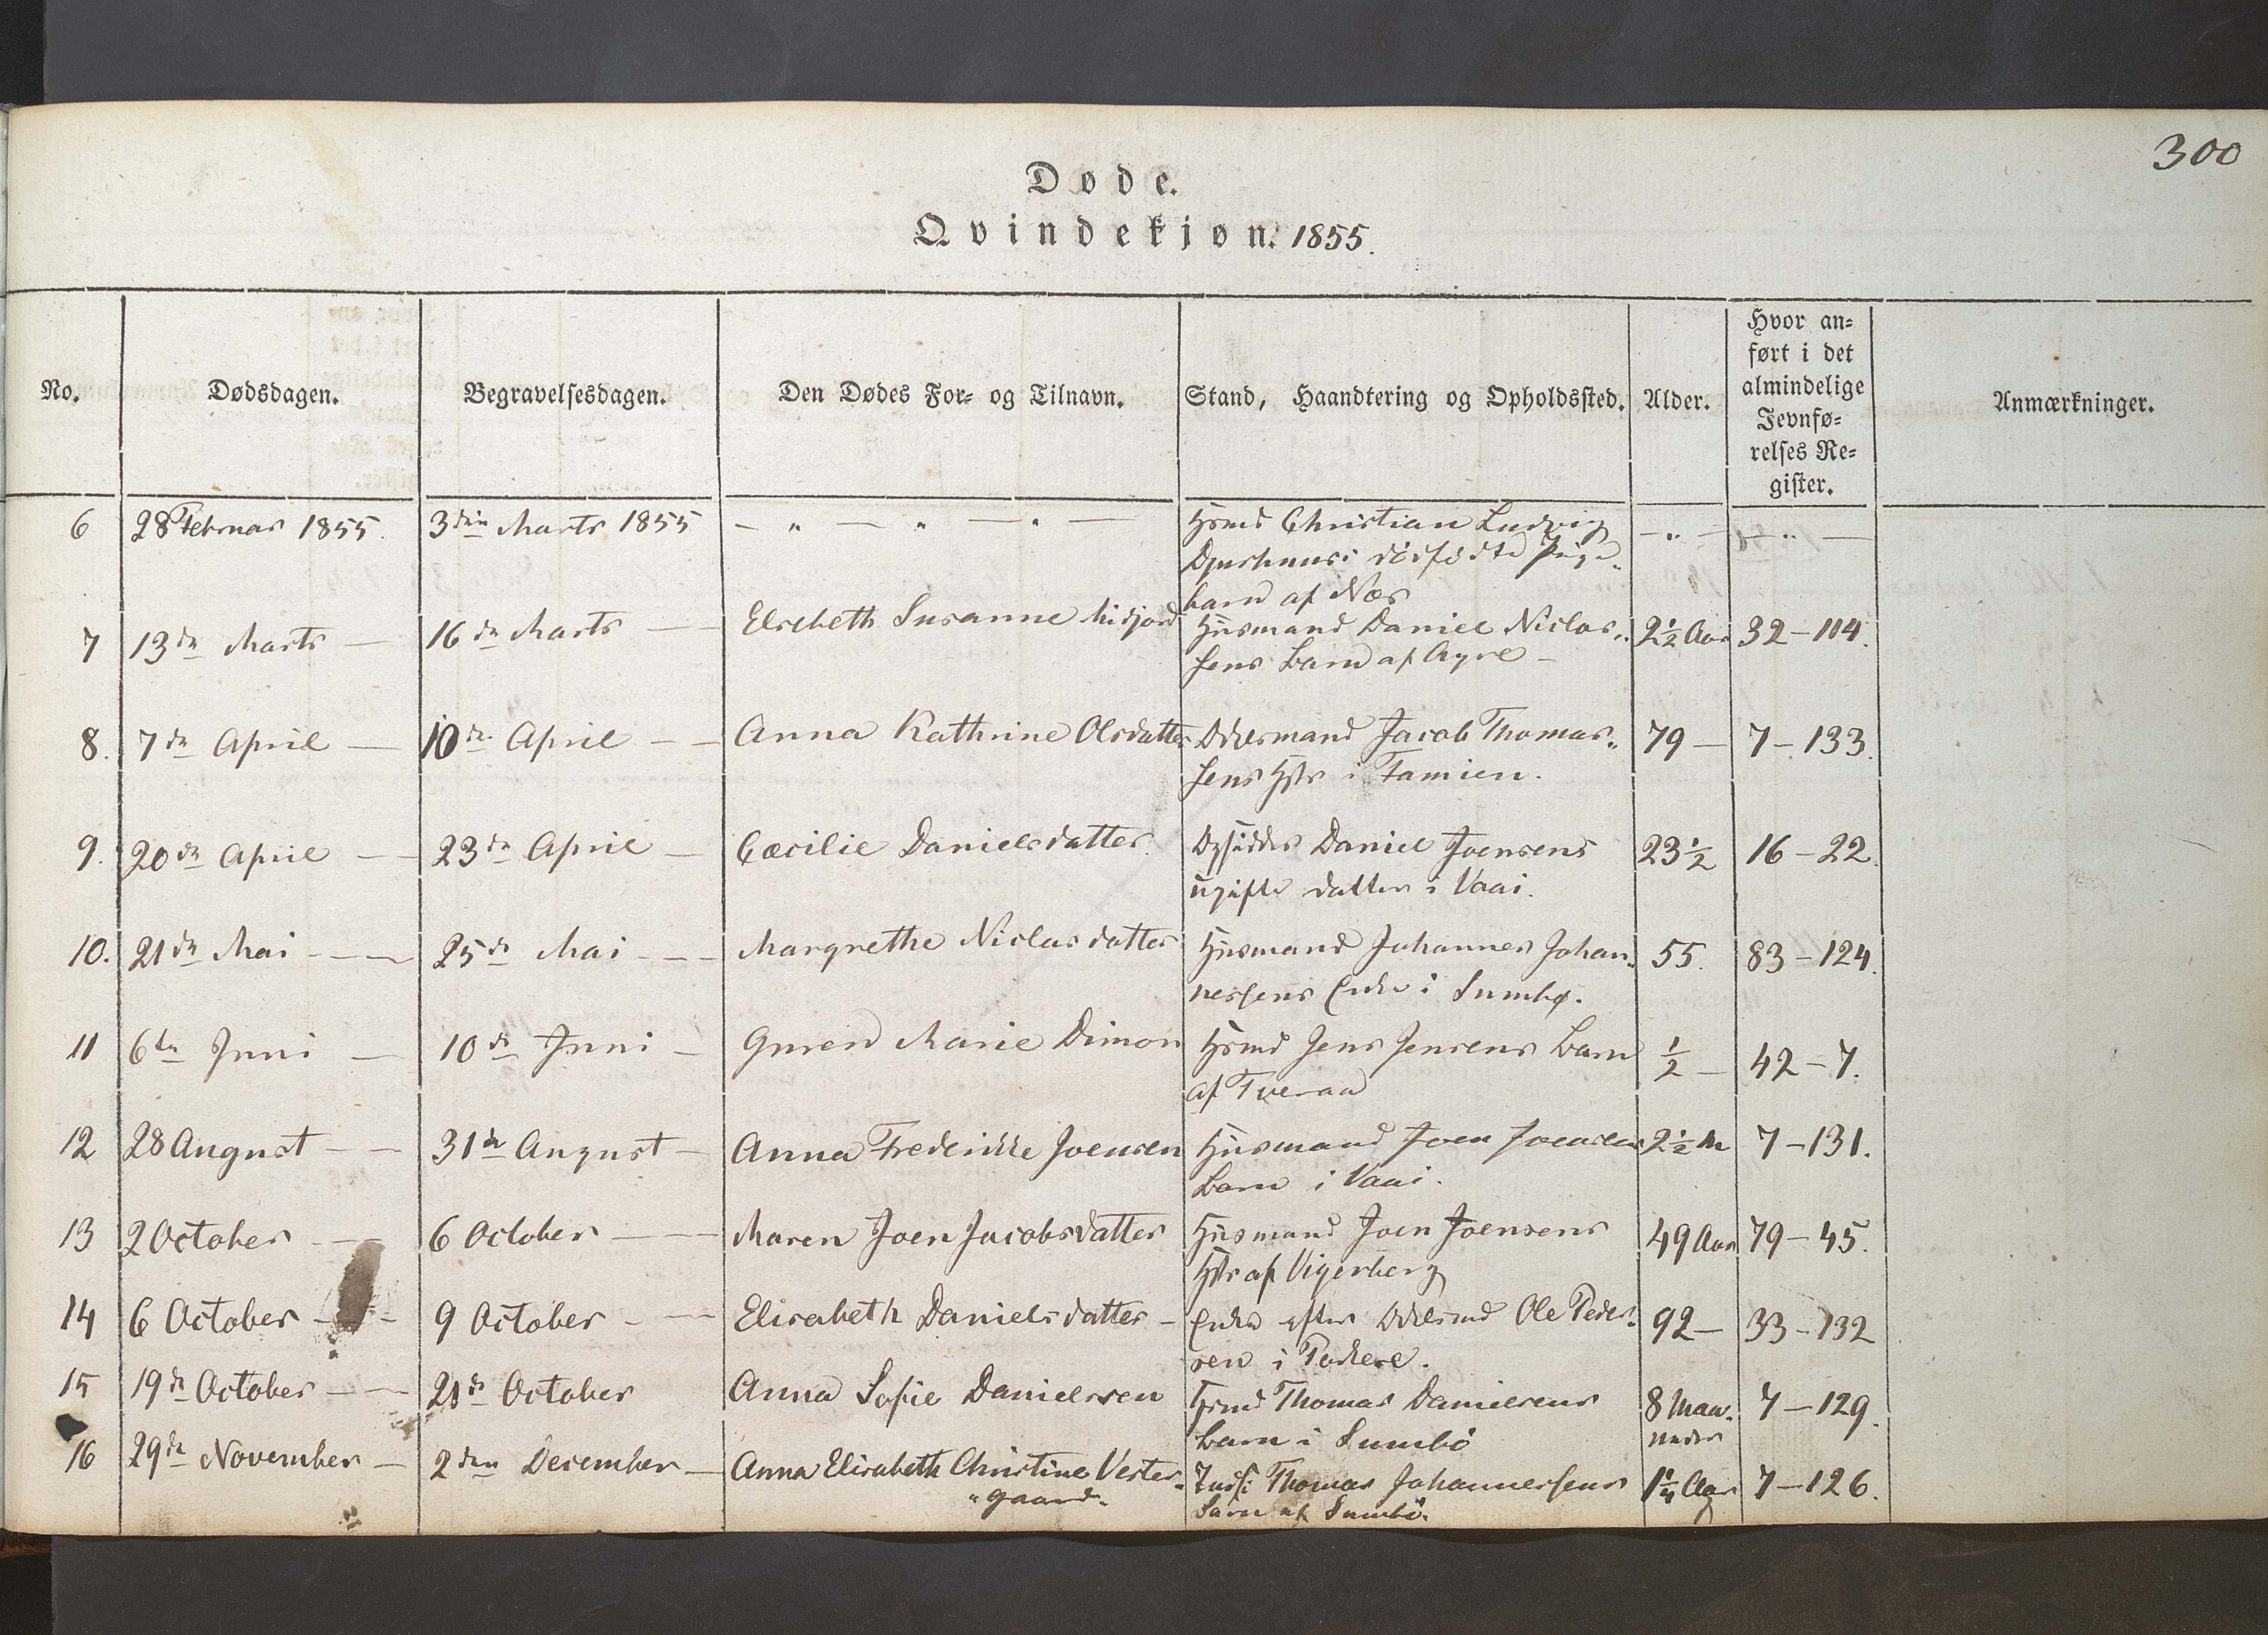 300
Døde.
Qvindekjøn. 1855.
No.
Dødsdagen.
Begravelsesdagen.
Den Dødes For- og Tilnavn.
Stand, Haandtering og Opholdssted.
Alder.
Hvor an-
ført i det
almindelige
Jevnfø-
relses Re-
gister.
Anmærkninger.
6 28 Februar 1855. 3die Marts 1855 — " — " — " — Hsmd Christian Ludvig — " — — " —
Djurhuus's dødfødte Pige-
barn af Næs
7 13de Marts — 16de Marts — Elsebeth Susanne Midjord Huusmand Daniel Niclas- 2½ Aar 32 – 114.
sens Barn af Ayre —
8. 7de April — 10de April — Anna Kathrine Olsdatter Odelsmand Jacob Thomas- 79 — 7 – 133.
sens Hstr i Famien.
9. 20de April — 23de April — Cæcilie Danielsdatter. Opsidder Daniel Joensens 23½ 16 – 22.
ugifte Datter i Vaai.
10. 21de Mai — 25de Mai — Margrethe Niclasdatter Huusmand Johannes Johan- 55. 83 – 124.
nessens Enke i Sumbø.
11 6te Juni — 10de Juni — Guren Marie Dimon Hsmd Jens Jensens Barn ½ — 42 – 7.
af Tveraa
12 28 August — 31de August — Anna Frederikke Joensen Huusmand Joen Joensens 2½ 7 – 131.
Barn i Vaai.
13 2 October — 6 October — Maren Joen Jacobsdatter Huusmand Joen Joensens 49 Aar 79 – 45.
Hstr af Vigerberg
14 6 October — 9 October — Elisabeth Danielsdatter — Enke efter Odelsmd Ole Peder- 92 — 33 – 132
sen i Porkere.
15 19de October — 21de October Anna Sofie Danielssen Hsmd Thomas Danielsens 8 Maa- 7 – 129.
Barn i Sumbø neder
16 29de November — 2den December — Anna Elisabeth Christine Vester- Thomas Johannessens 1¼ Aar 7 – 126.
"gaard. Barn af Sumbø.